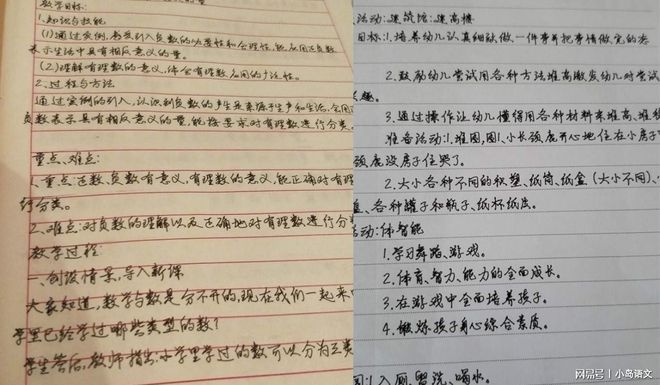 教学目标:
1.知识与技能
(1)通过实例,感受引入负数的必要性和合理性,能应用正负数
表示生活中具有相反意义的量。
(2)理解有理数的意义,体会有理数应用的广泛性。
2.过程与方法
通过实例的引入,认识到负数的产生是来源于生产和生活,会用正
负数表示具有相反意义的量,能按要求对有理数进行分类。
重点、难点:
1.重点:正数、负数有意义,有理数的意义,能正确对有理
行分类。
2.难点:对负数的理解以及正确地对有理数进行分
教学过程:
一、创设情景,导入新课
大家知道,数学与数是分不开的,现在我们一起来
学里已经学过哪些类型的数?
学生答后,教师指出:小学里学过的数可以分为三类
活动:建筑馆:建高楼
目标:1.培养幼儿认真细致做一件事并把事情做完的态
2.鼓励幼儿尝试用各种方法堆高激发幼儿对尝试
趣。
3.通过操作让幼儿懂得用各种材料来堆高、堆
准备活动:1.挂图,图1.小长颈鹿开心地住在小房子
颈鹿没房子住哭了。
2.大小各种不同的积塑、纸筒、纸盒(大小不同)、
、各种罐子和瓶子、纸杯纸法。
活动:体智能
1.学习舞蹈、游戏。
2.体育、智力、能力的全面成长。
3.在游戏中全面培养孩子。
4.锻炼孩子身心综合素质。
1.入厕、盥洗、喝水。
网易号 | 小鸟语文